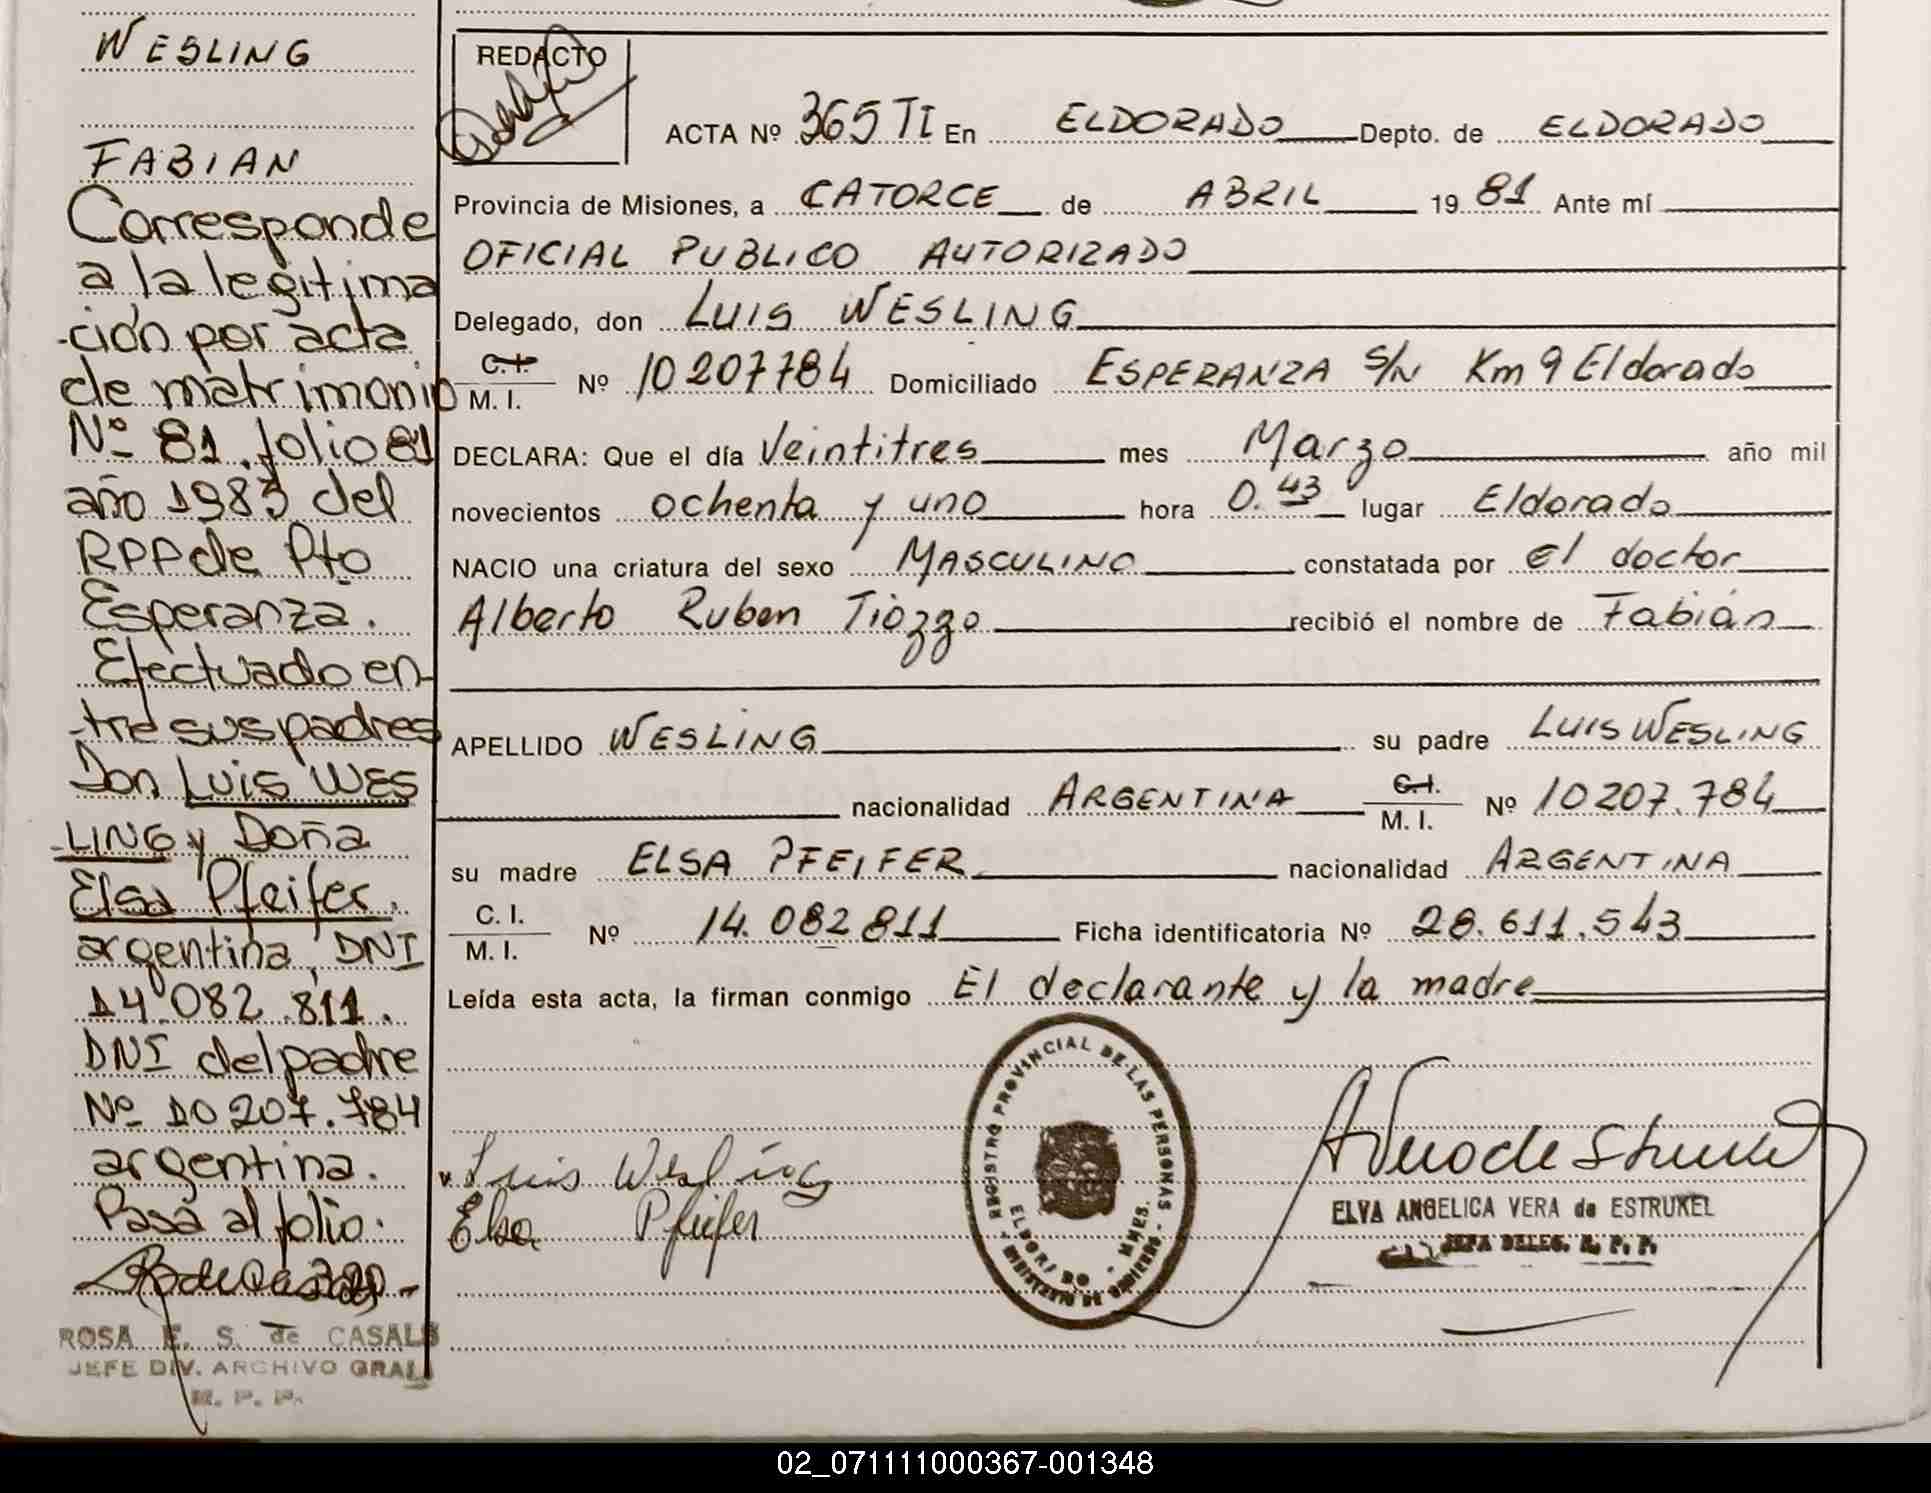 WESLING
FABIAN
Corresponde
a la legitima
-ción por acta
de matrimonio
Nº 81 folio 81
año 1983 del
RPP de Pto
Esperanza.
Efectuado en-
-tre sus padres
Don Luis WES
-LING y Doña
Elsa Pfeifer.
argentina, DNI
14.082.811.
DNI del padre
Nº 10207.784
argentina.
Pasa al folio:
ROSA E. S. de CASALS
JEFE DIV. ARCHIVO GRAL
R. P. P.
REDACTO
ACTA Nº 365 TI En ELDORADO Depto. de ELDORADO
Provincia de Misiones, a CATORCE de ABRIL 19 81 Ante mí
OFICIAL PUBLICO AUTORIZADO
Delegado, don LUIS WESLING
C.I. / M. I. Nº 10207784 Domiciliado ESPERANZA S/N Km 9 Eldorado
DECLARA: Que el día Veintitres mes Marzo año mil
novecientos ochenta y uno hora 0.43 lugar Eldorado
NACIO una criatura del sexo MASCULINO constatada por el doctor
Alberto Ruben Tiozzo recibió el nombre de Fabián
APELLIDO WESLING su padre LUIS WESLING
nacionalidad ARGENTINA C.I. / M. I. Nº 10207.784
su madre ELSA PFEIFER nacionalidad ARGENTINA
C. I. / M. I. Nº 14.082 811 Ficha identificatoria Nº 28.611.543
Leída esta acta, la firman conmigo El declarante y la madre
REGISTRO PROVINCIAL DE LAS PERSONAS
ELDORADO - MNES.
- MINISTERIO DE GOBIERNO -
Luis Wesling
Elsa Pfeifer
ELVA ANGELICA VERA de ESTRUXEL
JEFA DELEG. R. P. P.
02_071111000367-001348